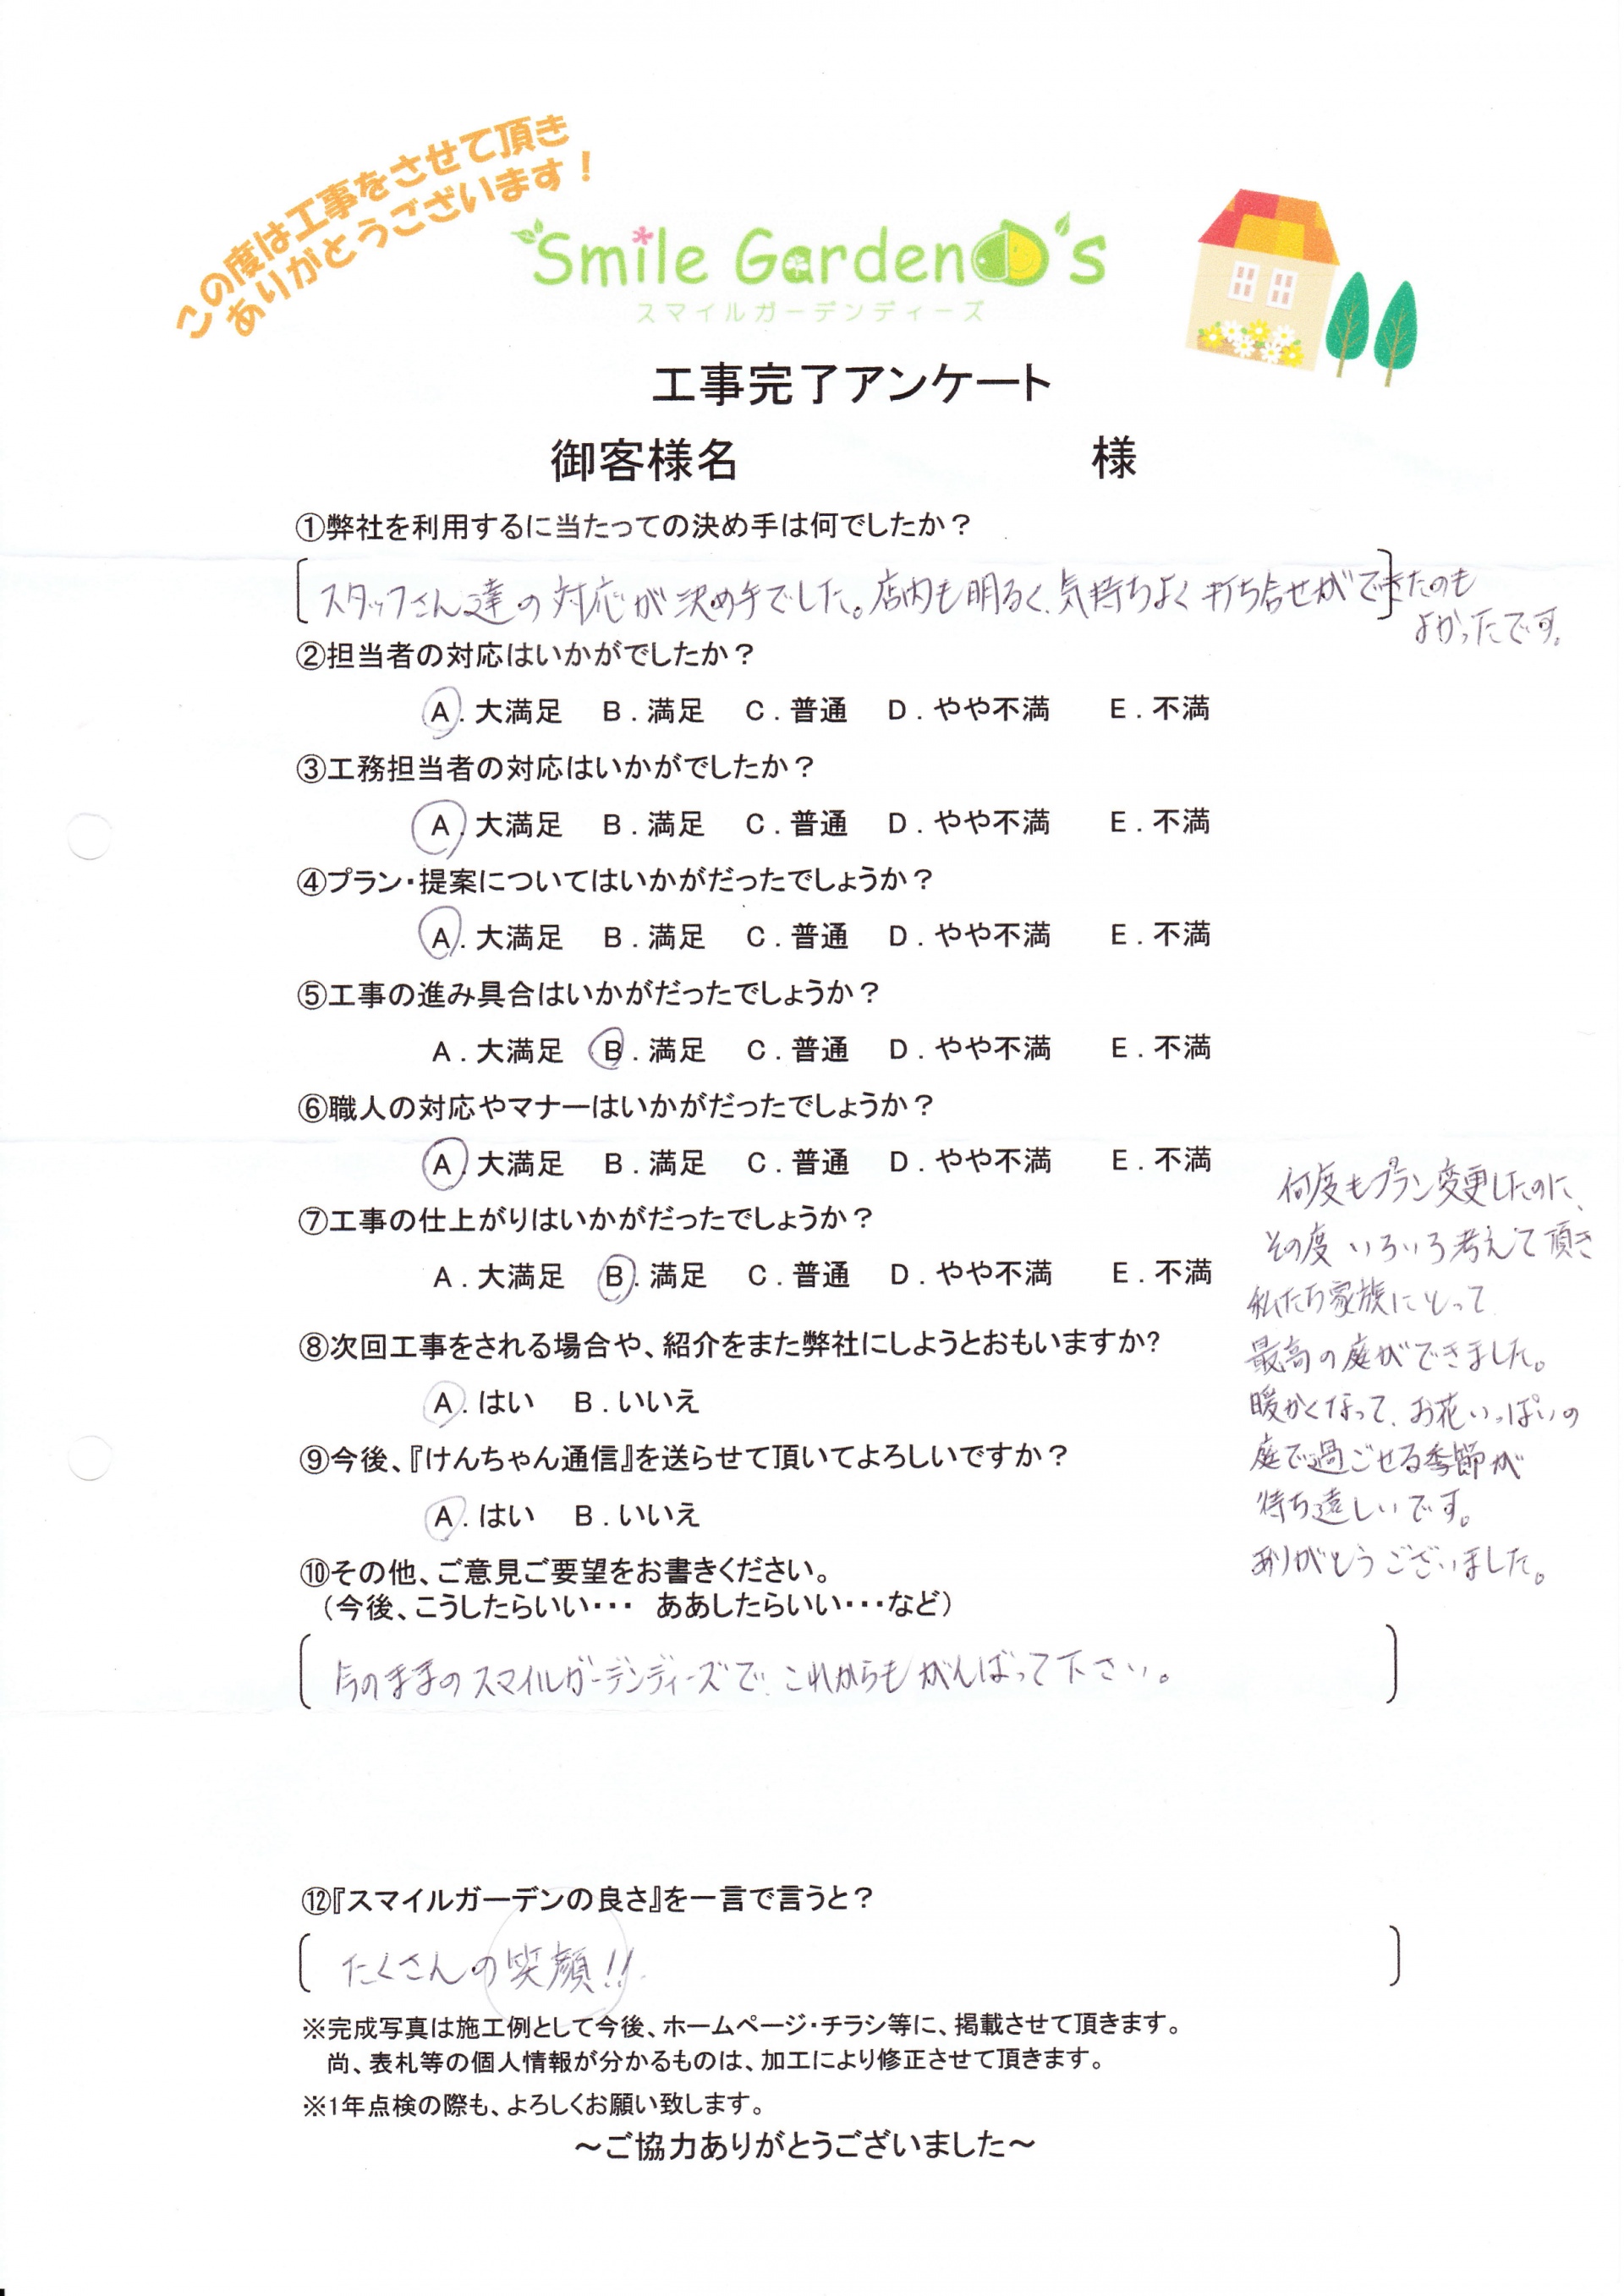 この度は工事をさせて頂き
ありがとうございます！
Smile Garden D's
スマイルガーデンディーズ
工事完了アンケート
御客様名 様
①弊社を利用するに当たっての決め手は何でしたか？
スタッフさん達の対応が決め手でした。店内も明るく、気持ちよく打ち合せができたのも
よかったです。
②担当者の対応はいかがでしたか？
A．大満足 B．満足 C．普通 D．やや不満 E．不満
③工務担当者の対応はいかがでしたか？
A．大満足 B．満足 C．普通 D．やや不満 E．不満
④プラン・提案についてはいかがだったでしょうか？
A．大満足 B．満足 C．普通 D．やや不満 E．不満
⑤工事の進み具合はいかがだったでしょうか？
A．大満足 B．満足 C．普通 D．やや不満 E．不満
⑥職人の対応やマナーはいかがだったでしょうか？
A．大満足 B．満足 C．普通 D．やや不満 E．不満
⑦工事の仕上がりはいかがだったでしょうか？
A．大満足 B．満足 C．普通 D．やや不満 E．不満
⑧次回工事をされる場合や、紹介をまた弊社にしようとおもいますか?
A．はい B．いいえ
⑨今後、『けんちゃん通信』を送らせて頂いてよろしいですか？
A．はい B．いいえ
何度もプラン変更したのに、
その度いろいろ考えて頂き
私たち家族にとって
最高の庭ができました。
暖かくなって、お花いっぱいの
庭で過ごせる季節が
待ち遠しいです。
ありがとうございました。
⑩その他、ご意見ご要望をお書きください。
（今後、こうしたらいい・・・ ああしたらいい・・・など）
今のままのスマイルガーデンディーズで、これからもがんばって下さい。
⑫『スマイルガーデンの良さ』を一言で言うと？
たくさんの笑顔!!
※完成写真は施工例として今後、ホームページ・チラシ等に、掲載させて頂きます。
尚、表札等の個人情報が分かるものは、加工により修正させて頂きます。
※1年点検の際も、よろしくお願い致します。
～ご協力ありがとうございました～